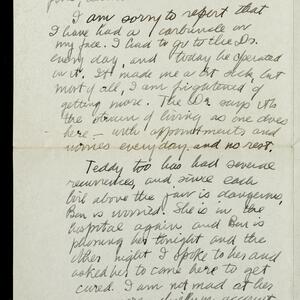 I am sorry to report that
I have had a carbuncle on
my face. I had to go to the Dr.
every day, and today he operated
on it. It made me a bit sick, but
most of all, I am frightened of
getting more. The Dr. says it's
the strain of living as one does
here – with appointments and
worries every day and no rest.
Teddy too has had several
recurrences, and since each
boil above the jaw is dangerous,
Ben is worried. She is in the
hospital again and Ben is
phoning her tonight and the
other night I spoke to her and
asked her to come here to get
cured. I am not mad at her